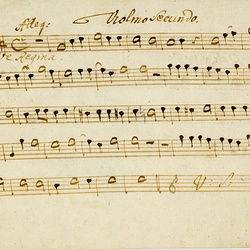 Alleg: Violino Secundo.
ve Regina.
V: S: